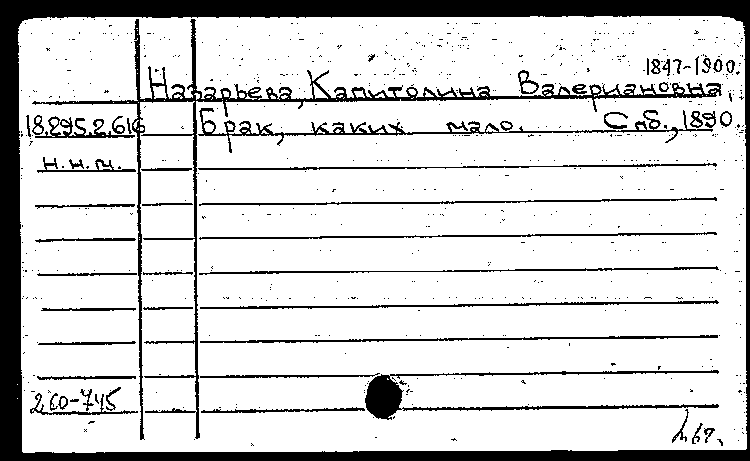 1847-1900.
Назарьева, Капитолина Валериановна.
18.295.2.616 Брак, каких мало. Спб., 1890.
н.н.м.
260-745